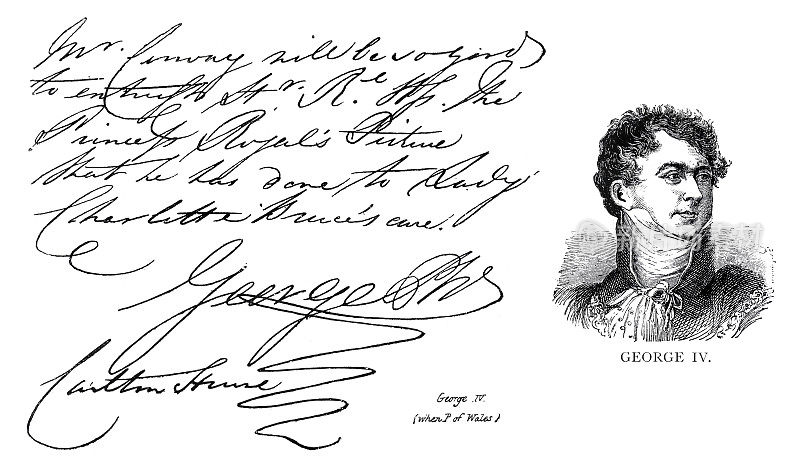 Mr. Conway will be so good
to entrust Hr. Rl. Hss. the
Princess Royal's Picture
that he has done, to Lady
Charlotte Bruce's care.
George P
Carlton House
George IV.
(when P of Wales)
GEORGE IV.